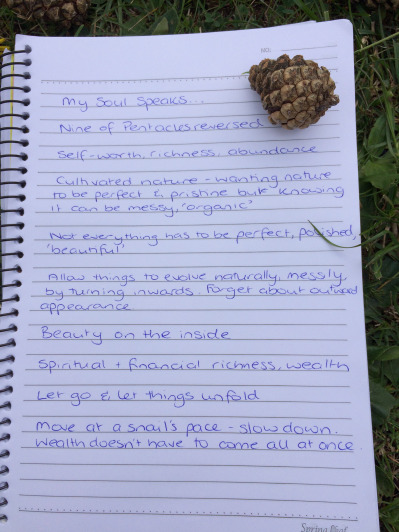 My Soul Speaks...
Nine of Pentacles reversed
Self-worth, richness, abundance
Cultivated nature - wanting nature
to be perfect & pristine but knowing
it can be messy, 'organic'
Not everything has to be perfect, polished,
'beautiful'
Allow things to evolve naturally, messily,
by turning inwards. Forget about outward
appearance
Beauty on the inside
Spiritual + financial richness, wealth
Let go & let things unfold
Move at a snail's pace - slow down.
Wealth doesn't have to come all at once.